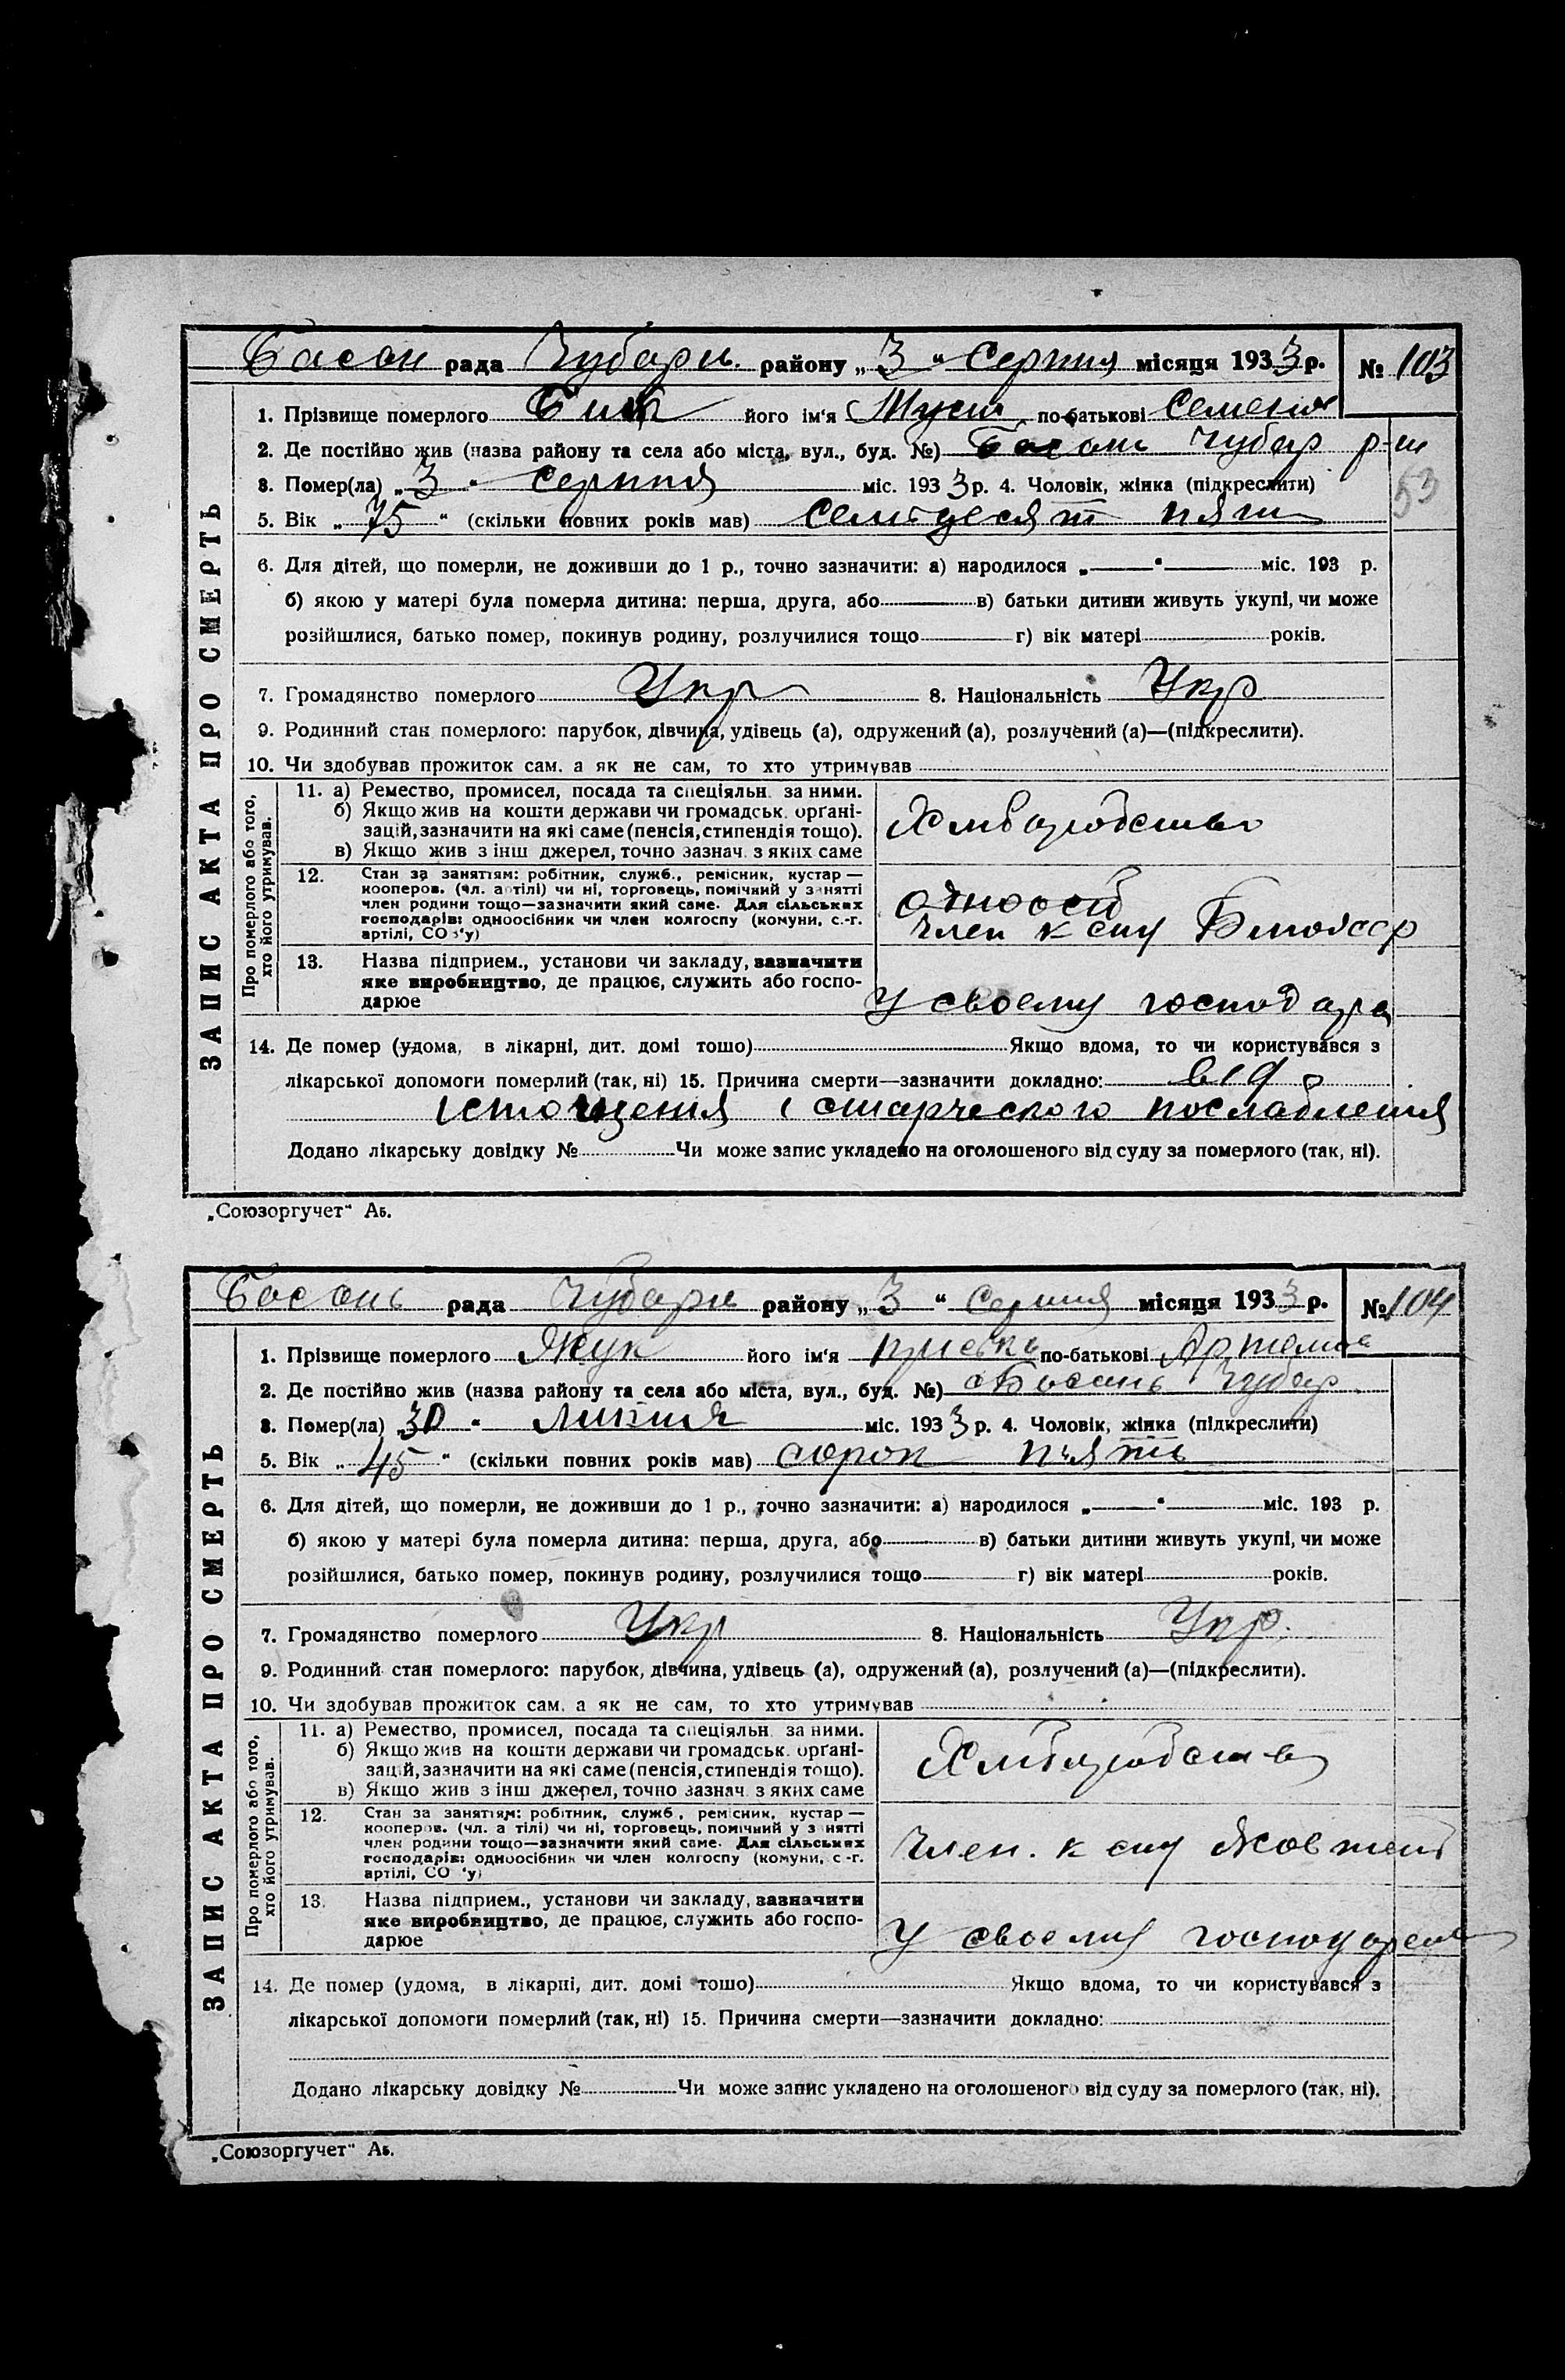 Басан рада Чубари. району „3“ Серпня місяця 1933 р. № 103
1. Прізвище померлого його ім‘я по-батькові Семенов
2. Де постійно жив (назва району та села або міста, вул., буд. №) Басань Чубар р-н
53
3. Помер(ла) „3“ Серпня міс. 1933 р. 4. Чоловік, жінка (підкреслити)
5. Вік „75“ (скільки повних років мав) семьдесят пять
6. Для дітей, що померли, не доживши до 1 р., точно зазначити: а) народилося „ “ міс. 193 р.
б) якою у матері була померла дитина: перша, друга, або в) батьки дитини живуть укупі, чи може
розійшлися, батько помер, покинув родину, розлучилися тощо г) вік матері років.
7. Громадянство померлого Укр 8. Національність Укр
9. Родинний стан померлого: парубок, дівчина, удівець (а), одружений (а), розлучений (а)—(підкреслити).
10. Чи здобував прожиток сам, а як не сам, то хто утримував
11. а) Ремество, промисел, посада та спеціяльн. за ними.
б) Якщо жив на кошти держави чи громадськ. орґані-
зацій, зазначити на які саме (пенсія, стипендія тощо).
в) Якщо жив з інш джерел, точно зазнач. з яких саме
Хлиборобство
12. Стан за заняттям: робітник, служб., ремісник, кустар —
кооперов. (чл. артілі) чи ні, торговець, помічний у занятті
член родини тощо—зазначити який саме. Для сільських
господарів: одноосібник чи член колгоспу (комуни, с.-г.
артілі, СОЗ‘у)
одноосіб
член к спу
13. Назва підприєм., установи чи закладу, зазначити
яке виробництво, де працює, служить або госпо-
дарює
У своему господар
14. Де помер (удома, в лікарні, дит. домі тощо) Якщо вдома, то чи користувався з
лікарської допомоги померлий (так, ні) 15. Причина смерти—зазначити докладно: від
істощения і старческого послабления
Додано лікарську довідку № Чи може запис укладено на оголошеного від суду за померлого (так, ні).
ЗАПИС АКТА ПРО СМЕРТЬ
Про померлого або того,
хто його утримував.
„Союзоргучет“ Аб.
Басань рада Чубари району „3“ Серпня місяця 1933 р. № 104
1. Прізвище померлого Жук його ім‘я Приська по-батькові Артемов
2. Де постійно жив (назва району та села або міста, вул., буд. №) с Басань Чубар
3. Помер(ла) „30“ липня міс. 1933 р. 4. Чоловік, жінка (підкреслити)
5. Вік „45“ (скільки повних років мав) сорок п'ять
6. Для дітей, що померли, не доживши до 1 р., точно зазначити: а) народилося „ “ міс. 193 р.
б) якою у матері була померла дитина: перша, друга, або в) батьки дитини живуть укупі, чи може
розійшлися, батько помер, покинув родину, розлучилися тощо г) вік матері років.
7. Громадянство померлого Укр 8. Національність Укр.
9. Родинний стан померлого: парубок, дівчина, удівець (а), одружений (а), розлучений (а)—(підкреслити).
10. Чи здобував прожиток сам, а як не сам, то хто утримував
11. а) Ремество, промисел, посада та спеціяльн. за ними.
б) Якщо жив на кошти держави чи громадськ. орґані-
зацій, зазначити на які саме (пенсія, стипендія тощо).
в) Якщо жив з інш джерел, точно зазнач. з яких саме
Хлиборобство
12. Стан за заняттям: робітник, служб., ремісник, кустар —
кооперов. (чл. артілі) чи ні, торговець, помічний у занятті
член родини тощо—зазначити який саме. Для сільських
господарів: одноосібник чи член колгоспу (комуни, с.-г.
артілі, СОЗ‘у)
член. к спу Жовтень
13. Назва підприєм., установи чи закладу, зазначити
яке виробництво, де працює, служить або госпо-
дарює
У своему господарстві
14. Де помер (удома, в лікарні, дит. домі тощо) Якщо вдома, то чи користувався з
лікарської допомоги померлий (так, ні) 15. Причина смерти—зазначити докладно:
Додано лікарську довідку № Чи може запис укладено на оголошеного від суду за померлого (так, ні).
ЗАПИС АКТА ПРО СМЕРТЬ
Про померлого або того,
хто його утримував.
„Союзоргучет“ Аб.